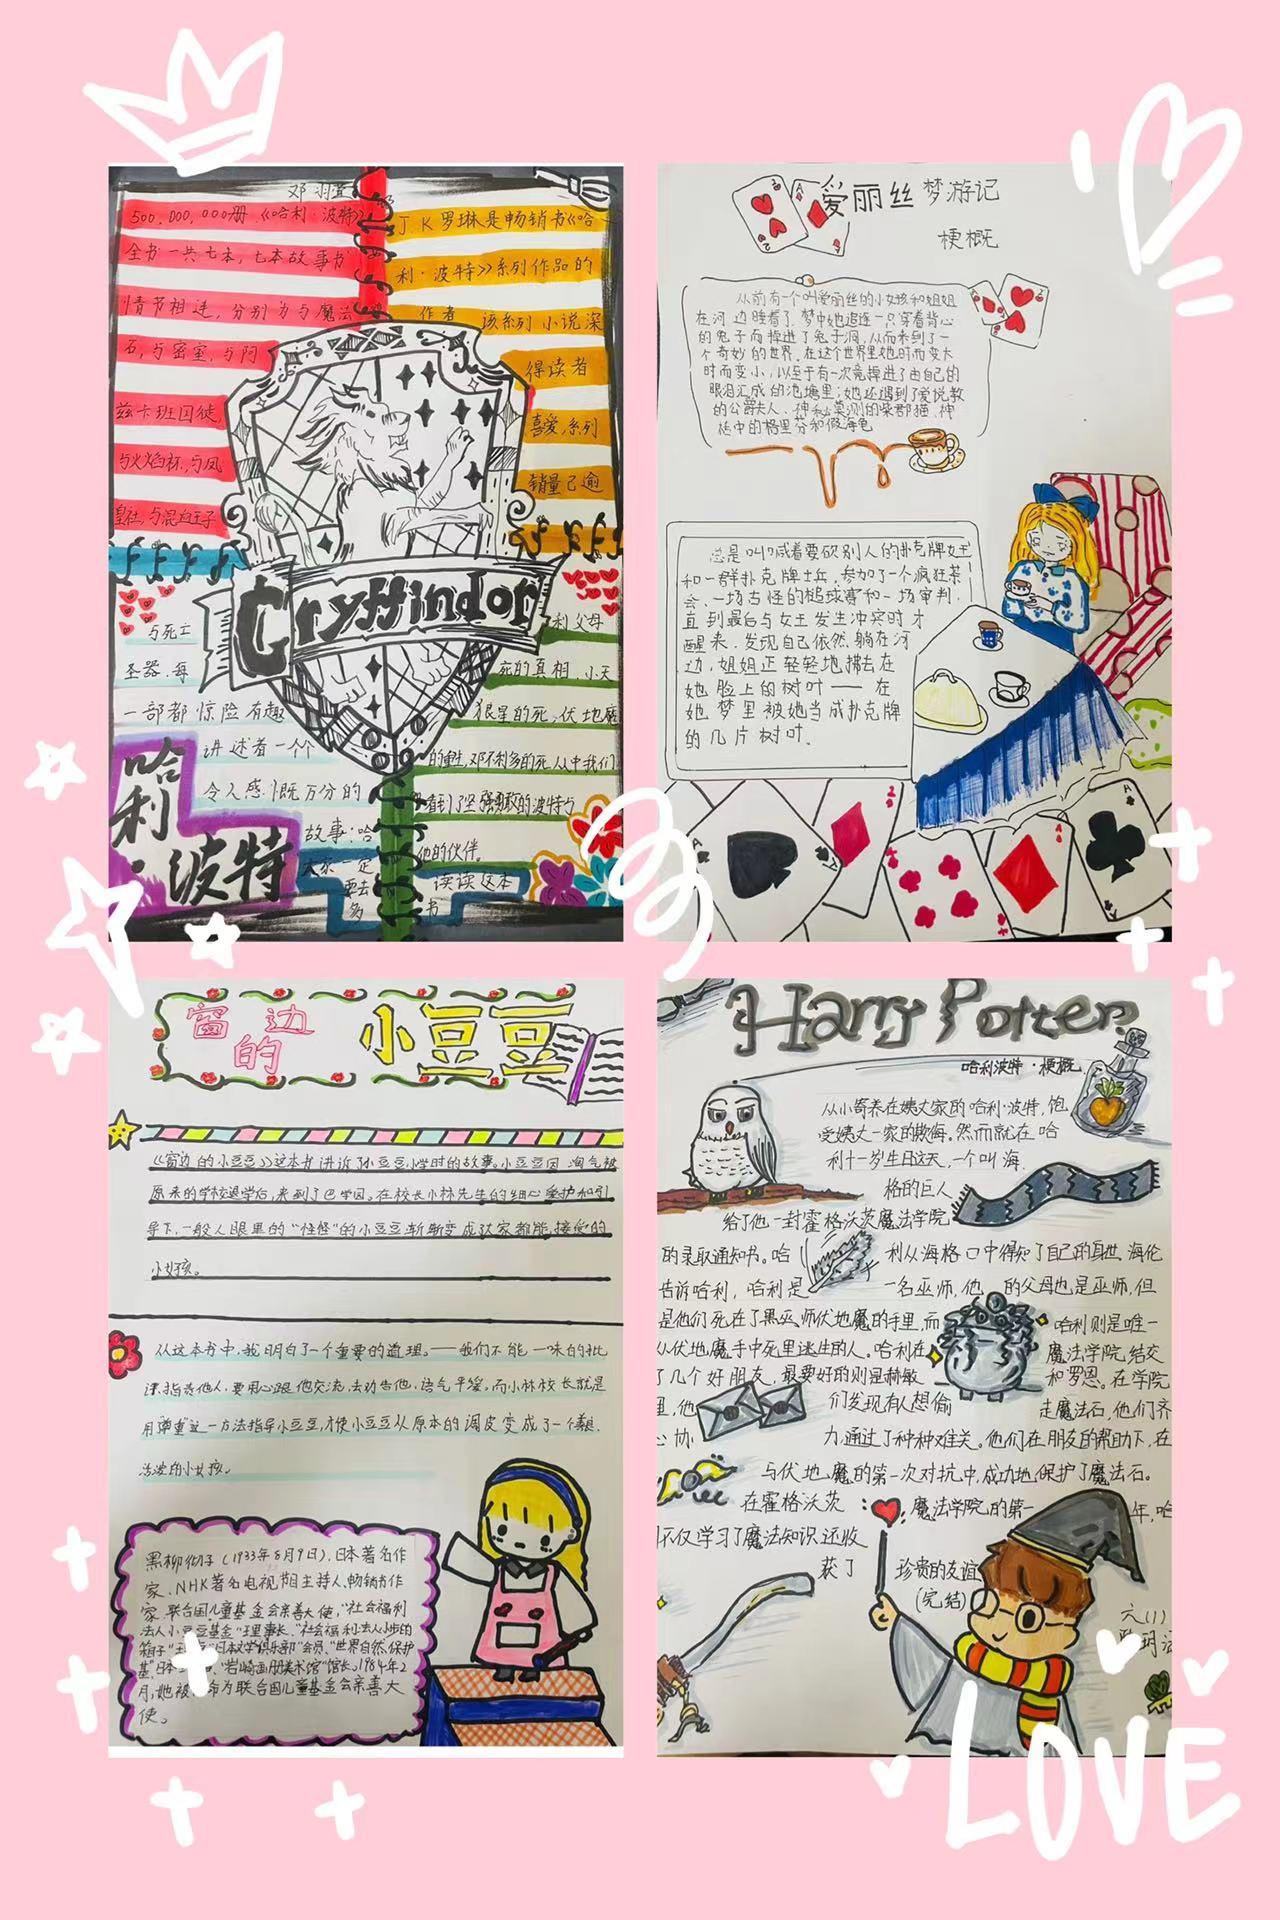 邓羽萱
500,000,000册《哈利·波特》
全书一共七本,七本故事书
情节相连,分别为与魔法
石,与密室,与阿
兹卡班囚徒,
与火焰杯,与凤
皇社,与混血王子
与死亡
圣器.每
一部都惊险有趣
讲述着一个
令人感慨万分的
故事:哈
J.K罗琳是畅销书《哈
利·波特》系列作品的
作者 该系列小说深
得读者
喜爱,系列
销量已逾
Gryffindor
利父母
死的真相,小天
狼星的死,伏地魔
的重生,邓不利多的死,从中我们
看到了坚强勇敢的波特与
他的伙伴。
大家一定
要去
多
读读这本
书
哈利·波特
爱丽丝梦游记
梗概
从前有一个叫爱丽丝的小女孩和姐姐
在河边睡着了,梦中她追逐一只穿着背心
的兔子而掉进了兔子洞,从而来到了一
个奇妙的世界,在这个世界里她时而变大
时而变小,以至于有一次竟掉进了由自己的
眼泪汇成的池塘里;她还遇到了爱说教
的公爵夫人、神秘莫测的柴郡猫、神
话中的格里芬和假海龟
总是叫喊着要砍别人的扑克牌女王
和一群扑克牌士兵,参加了一个疯狂茶
会、一场古怪的槌球赛和一场审判,
直到最后与女王发生冲突时才
醒来,发现自己依然躺在河
边,姐姐正轻轻地拂去在
她脸上的树叶——在
她梦里被她当成扑克牌
的几片树叶.
窗边的小豆豆
《窗边的小豆豆》这本书讲诉了小豆豆小学时的故事。小豆豆因淘气被
原来的学校退学后,来到了巴学园。在校长小林先生的细心爱护和引
导下,一般人眼里的“怪怪”的小豆豆渐渐变成大家都能接受的
小女孩。
从这本书中,我明白了一个重要的道理。——我们不能一味的批
评指责他人,要用心跟他交流,去劝告他,语气平缓。而小林校长就是
用“尊重”这一方法指导小豆豆,才使小豆豆从原本的调皮变成了一个
活泼的小女孩。
黑柳彻子(1933年8月9日),日本著名作
家、NHK著名电视节目主持人、畅销书作
家、联合国儿童基金会亲善大使,“社会福利
法人小豆豆基金”理事长、“社会福利法人
会员、“世界自然保护
馆长,1984年2
月,她被 命为联合国儿童基金会亲善大
使。
Harry Potter
哈利波特·梗概
从小寄养在姨丈家的哈利·波特,饱
受姨丈一家的欺侮。然而就在哈
利十一岁生日这天,一个叫海
格的巨人
给了他一封霍格沃茨魔法学院
的录取通知书。哈 利从海格口中得知了自己的身世,海伦
告诉哈利,哈利是 一名巫师,他 的父母也是巫师,但
是他们死在了黑巫师伏地魔的手里,而 哈利则是唯一
从伏地魔手中死里逃生的人。哈利在 魔法学院,结交
了几个好朋友,最要好的则是赫敏 和罗恩。在学院
里,他 们发现有人想偷 走魔法石,他们齐
心协 力,通过了种种难关。他们在朋友的帮助下,在
与伏地魔的第一次对抗中,成功地保护了魔法石。
在霍格沃茨 魔法学院的第一 年,哈
利不仅学习了魔法知识,还收
获了 珍贵的友谊
(完结)
六(1)
LOVE